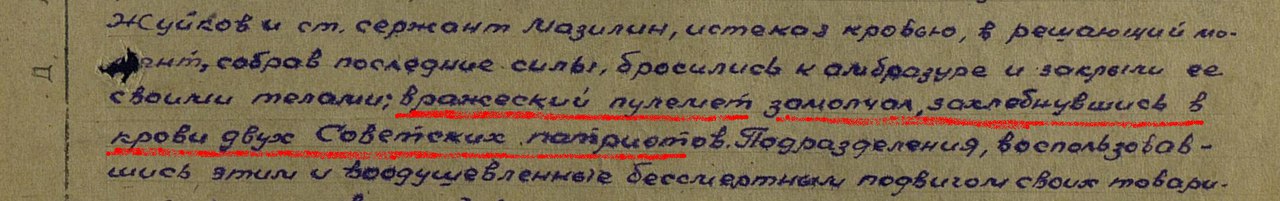 Д.
Жуйков и ст. сержант Мазилин, истекая кровью, в решающий мо-
мент, собрав последние силы, бросились к амбразуре и закрыли ее
своими телами; вражеский пулемет замолчал, захлебнувшись в
крови двух Советских патриотов. Подразделения, воспользовав-
шись этим и воодушевленные бессмертным подвигом своих товари-